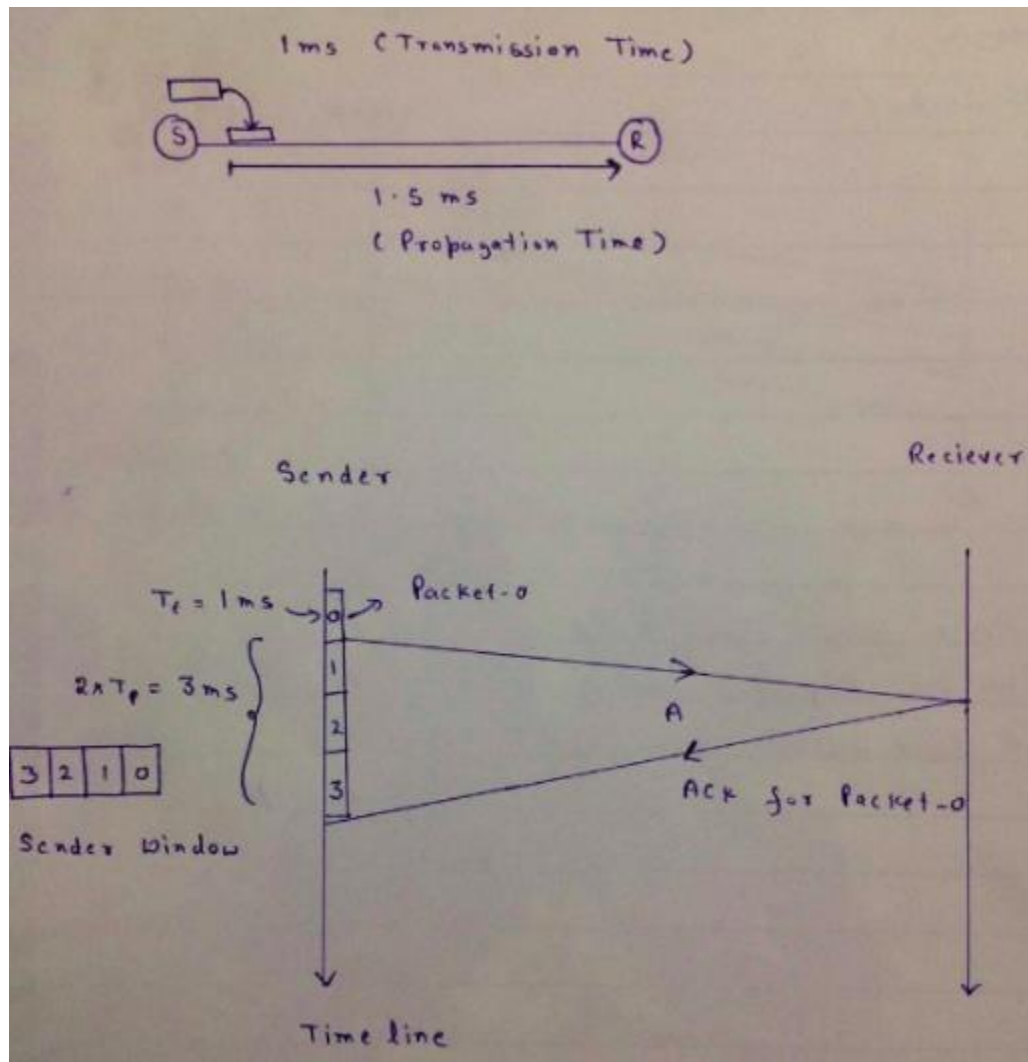 1ms (Transmission Time)
S
R
1.5 ms
(Propagation Time)
Sender
Reciever
Tt = 1ms
0
Packet-0
1
2xTp = 3ms
2
A
3 2 1 0
3
Ack for Packet-0
Sender Window
Time line